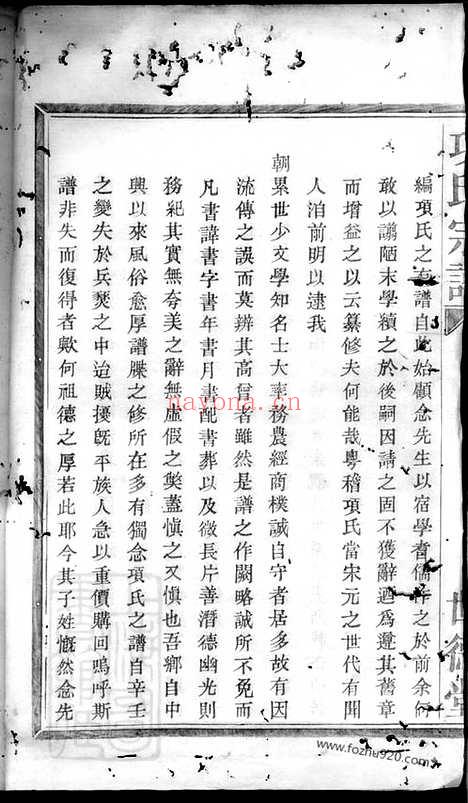 項氏宗譜
世德堂
編項氏之有譜自此始顧念先生以宿學耆儒作之於前余何
敢以譾陋末學續之於後嗣因請之固不獲辭迺爲遵其舊章
而增益之以云纂修夫何能哉粵稽項氏當宋元之世代有聞
人洎前明以逮我
朝累世少文學知名士大率務農經商樸誠自守者居多故有因
流傳之誤而莫辨其高曾者雖然是譜之作闕略誠所不免而
凡書諱書字書年書月書配書葬以及微長片善潛德幽光則
務紀其實無夸美之辭無虛假之獘蓋愼之又愼也吾鄉自中
興以來風俗愈厚譜牒之修所在多有獨念項氏之譜自辛壬
之變失於兵燹之中迨賊擾旣平族人急以重價購回嗚呼斯
譜非失而復得者歟何祖德之厚若此耶今其子姓慨然念先
nayona.cn
www.fozhu920.com